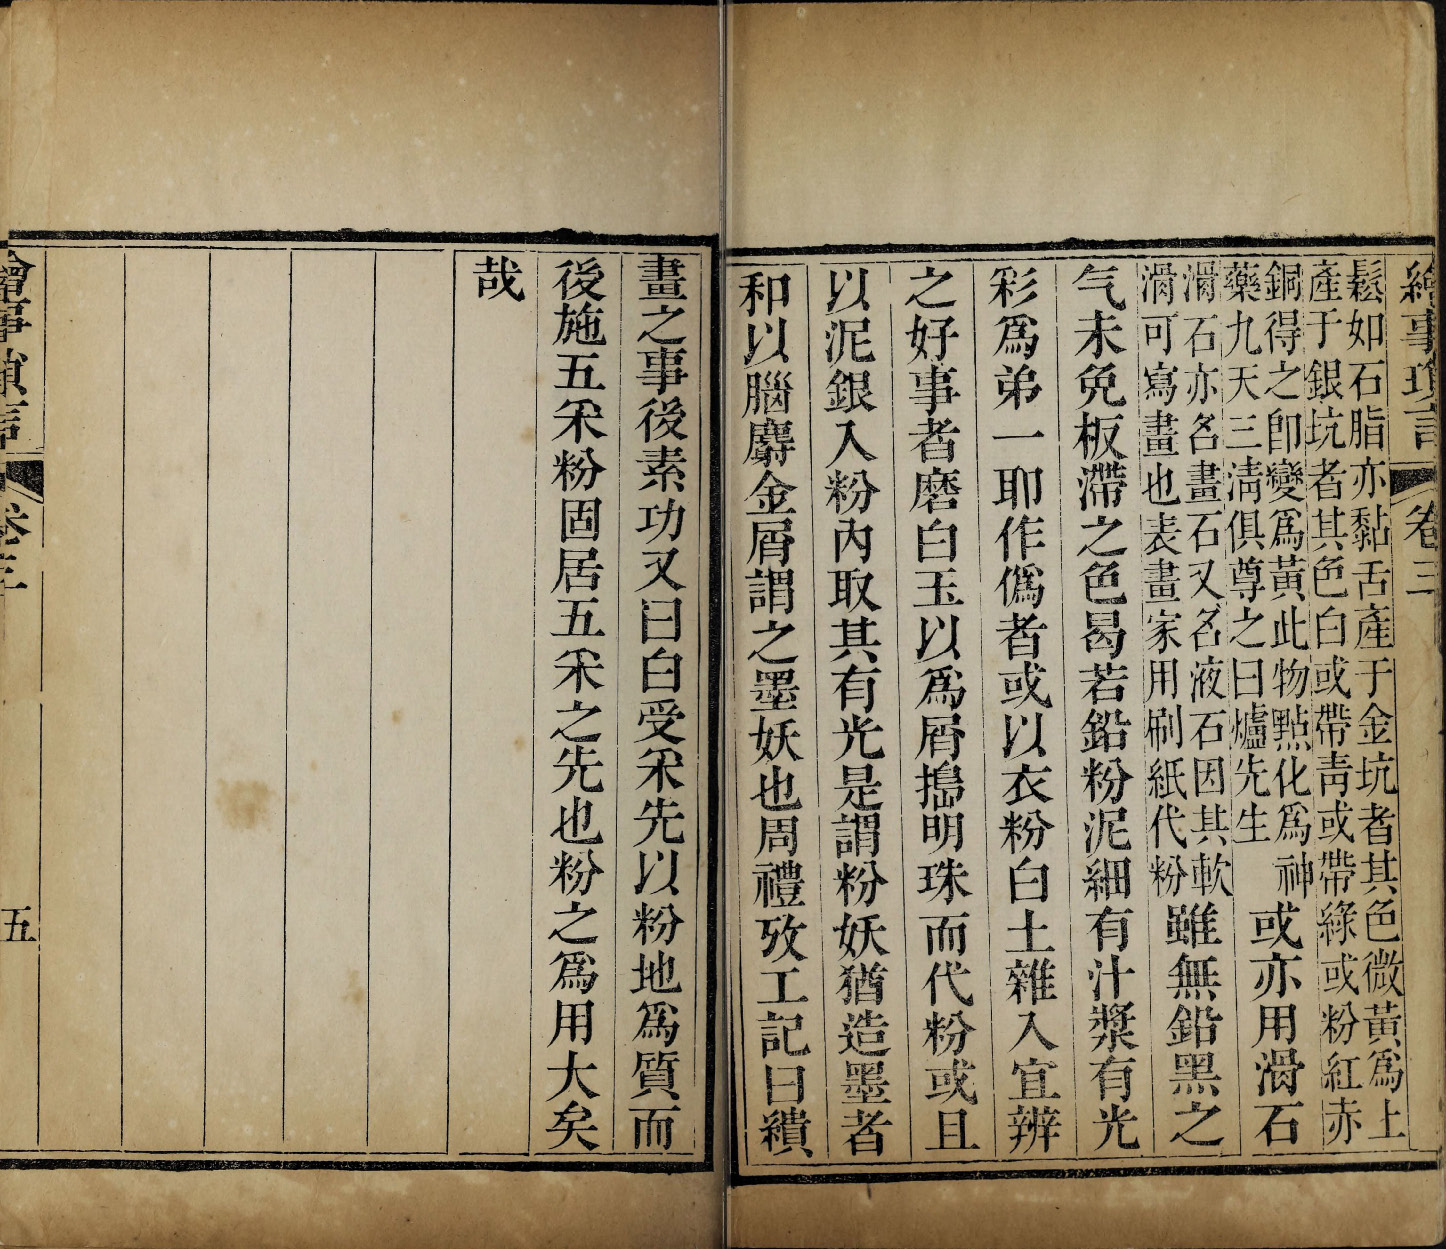 繪事瑣言 卷三
鬆如石脂亦黏舌產于金坑者其色微黃爲上
產于銀坑者其色白或帶靑或帶綠或粉紅赤
銅得之卽變爲黃此物點化爲神
藥九天三淸俱尊之曰爐先生
或亦用滑石
滑石亦名畫石又名液石因其軟
滑可寫畫也表畫家用刷紙代粉
雖無鉛黑之
气未免板滯之色曷若鉛粉泥細有汁漿有光
彩爲弟一耶作僞者或以衣粉白土雜入宜辨
之好事者磨白玉以爲屑搗明珠而代粉或且
以泥銀入粉內取其有光是謂粉妖猶造墨者
和以腦麝金屑謂之墨妖也周禮攷工記曰繢
畫之事後素功又曰白受采先以粉地爲質而
後施五采粉固居五采之先也粉之爲用大矣
哉
繪事瑣言 卷三 五